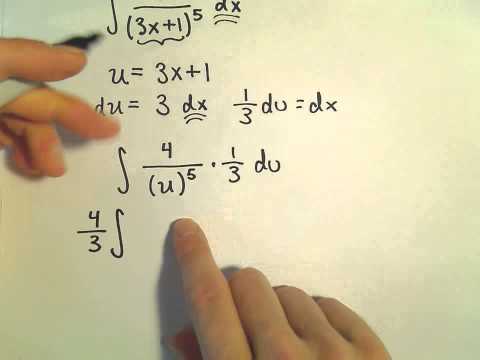 ∫ ――― dx
(3x+1)⁵
u = 3x+1
du = 3 dx   1/3 du = dx
∫ 4/(u)⁵ · 1/3 du
4/3 ∫